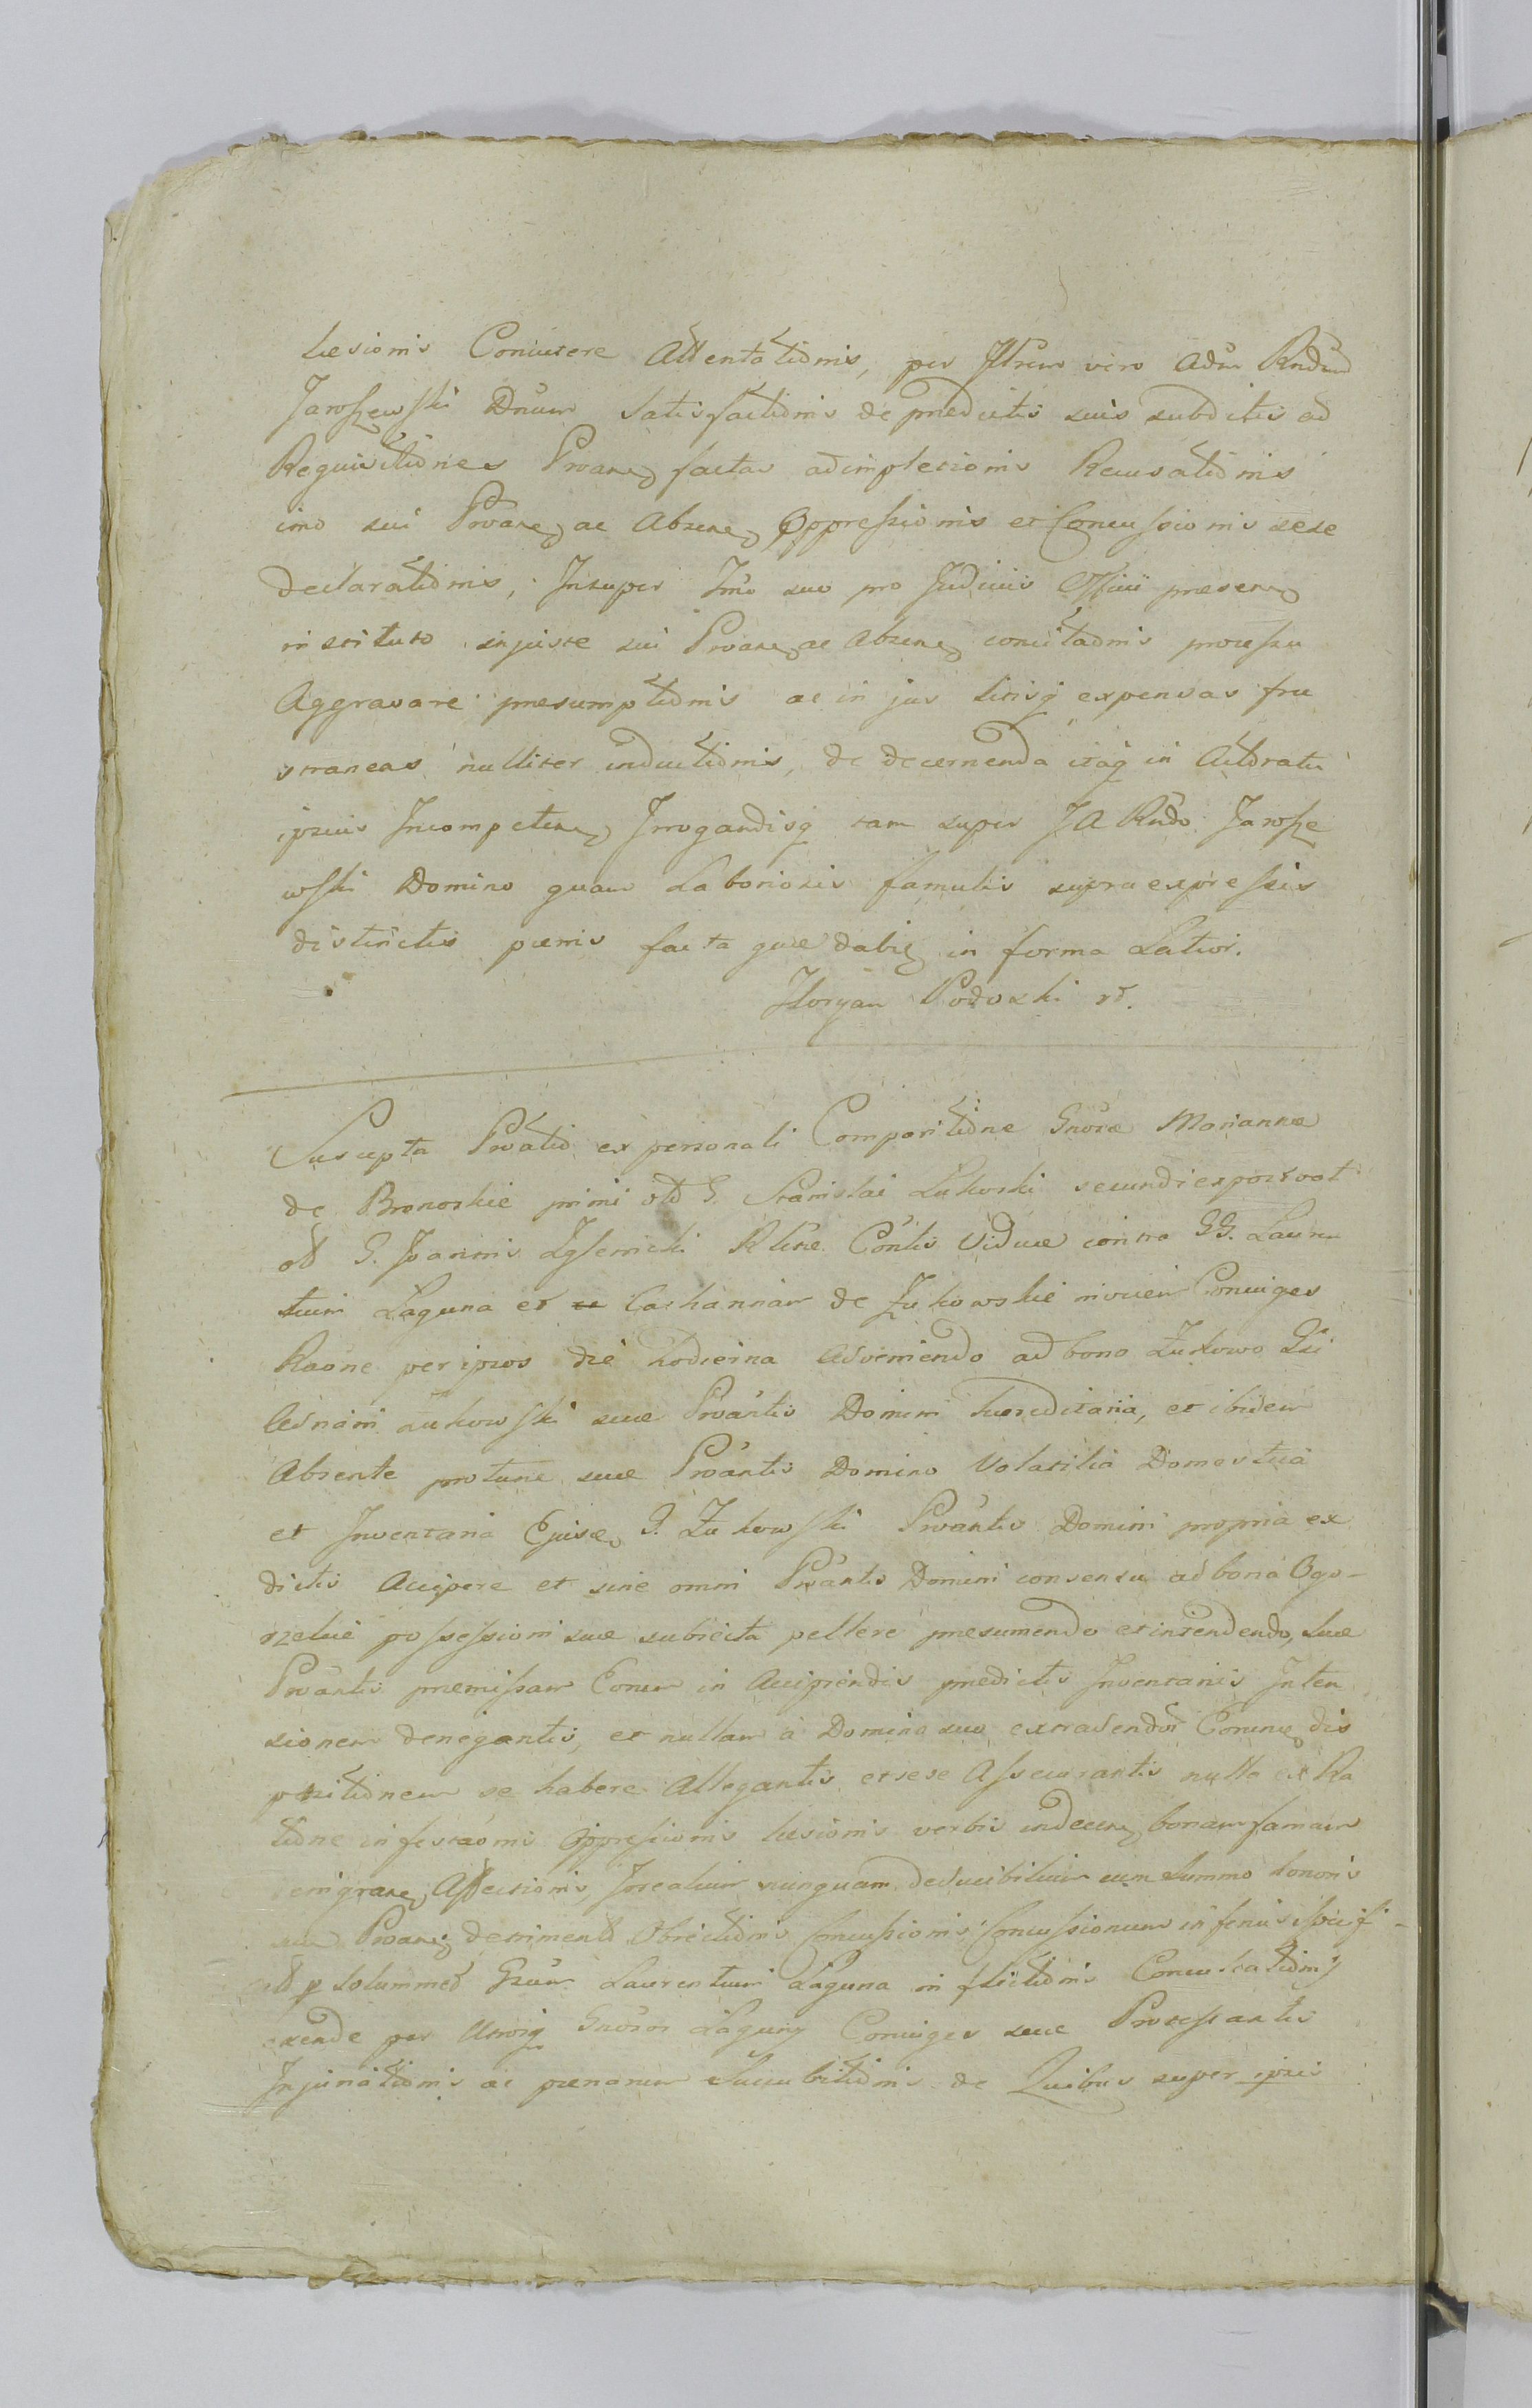 Lesionis Coniicere Attentationis, per Jllrem vero Adm Rndum
Jaroszewski Dnum Satisfactionis de predictis suis subditis ad
Requisitiones Proane factas adimpletionis Recusationis
imo sui Proane ac Absene Oppressionis et Concussionis sese
declarationis, Insuper Jmo suo pro Judiciis Officii presene
instituto injuste sui Proane ac Absene concitaonis processu
Aggravare presumptionis ac in jus litisq expensas fru
straneas nulliter inductionis, de decernenda itaq in Actoratu
ipsius Incompetene Jrrogandisq tam super JA Rndo Jarosze
wski Domino quam Laboriosis famulis supra expressis
distinctis poenis facta quae dabie in forma Latiori.
Floryan Podoski rd.
Suscepta Proatio ex personali Comparitione Gnosae Mariannae
de Bronoskie primi old G. Stanislai Lukoski secundi expost vot
old G. Joannis Zglenicki Rlictae Contis Viduae contra GG. Lauren
tium Laguna et Catharinam de Zukowskie invicem Coniuges
Raone per ipsos die hodierna Adveniendo ad bona Zukowo Gsi
Adnami Zukowski suae Proantis Domini haereditaria, et ibidem
Absente protunc suae Proantis Domino Volatilia Domestica
et Inventaria Ejusde G. Zukowski Proantis Domini propria ex
dictis Accipere et sine omni Proantis Domini consensu ad bona Ogo-
rzelice possessioni suae subiecta pellere presumendo et intendendo, suae
Proantis premissam Eorum in Accipiendis predictis Inventariis Inten
sionem denegantis, et nullam à Domino suo extradendor Eorune dis
positionem se habere Allegantis et sese Assecurantis nulla ex Ra
tione infestaonis Oppressionis lesionis verbis indecene bonam famam
Affectionis Jrrealium nunquam deducibilium cum Summo honoris
Proane detrimento Obiectionis Concussionis Concussionum inferius
solummod Gsum Laurentium Laguna inflictionis Conculcationis
exinde per Utrosq Gnosos Laguny Coniuges suae Protestantis
Injuriationis ac poenarum Succubitionis de Quibus super ipsis